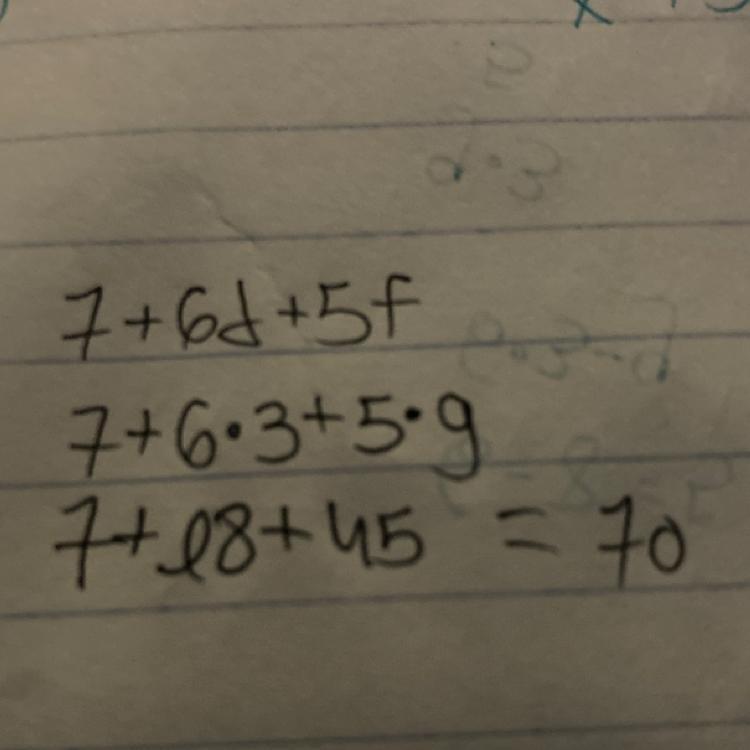 7+6d+5f
7+6·3+5·9
7+18+45 = 70